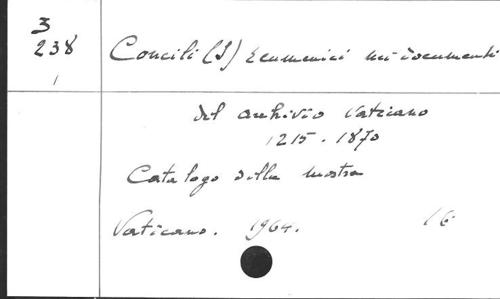 3
238
1
Concili (I) Ecumenici nei documenti
del archivio Vaticano
1215-1870
Catalogo della mostra
Vaticano. 1964. 16